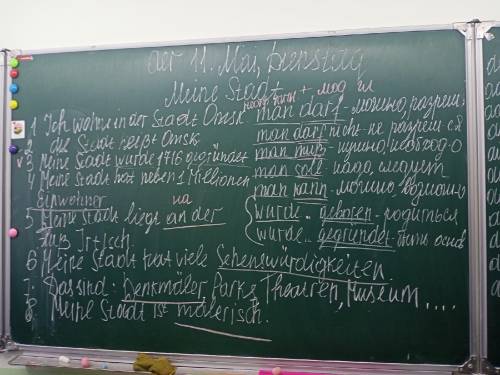 der 11. Mai, Dienstag
Meine Stadt
+ мод гл
1 Ich wohne in der Stadt Omsk
2 die Stadt heißt Omsk
3 Meine Stadt wurde 1716 gegründet
4 Meine Stadt hat neben 1 Millionen
Einwohner
на
5 Meine Stadt liegt an der
Fluß Irtisch.
6 Meine Stadt hat viele Sehenswürdigkeiten.
7. Das sind: Denkmäler, Parks, Theatren, Museum ....
8. Meine Stadt ist malerisch.
man darf - можно, разреш.
man darf nicht - не разреш ся
man muß - нужно, необход-о
man soll - надо, следует
man kann - можно, возможно
wurde.. geboren - родиться
wurde.. gegründet быть основ